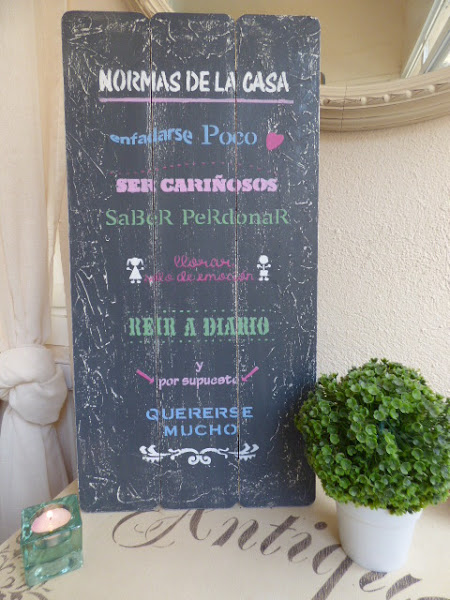 NORMAS DE LA CASA
enfadarse Poco
SER CARIÑOSOS
SaBeR PeRdonaR
llorar
solo de emoción
REIR A DIARIO
y
por supuesto
QUERERSE
MUCHO
Antique